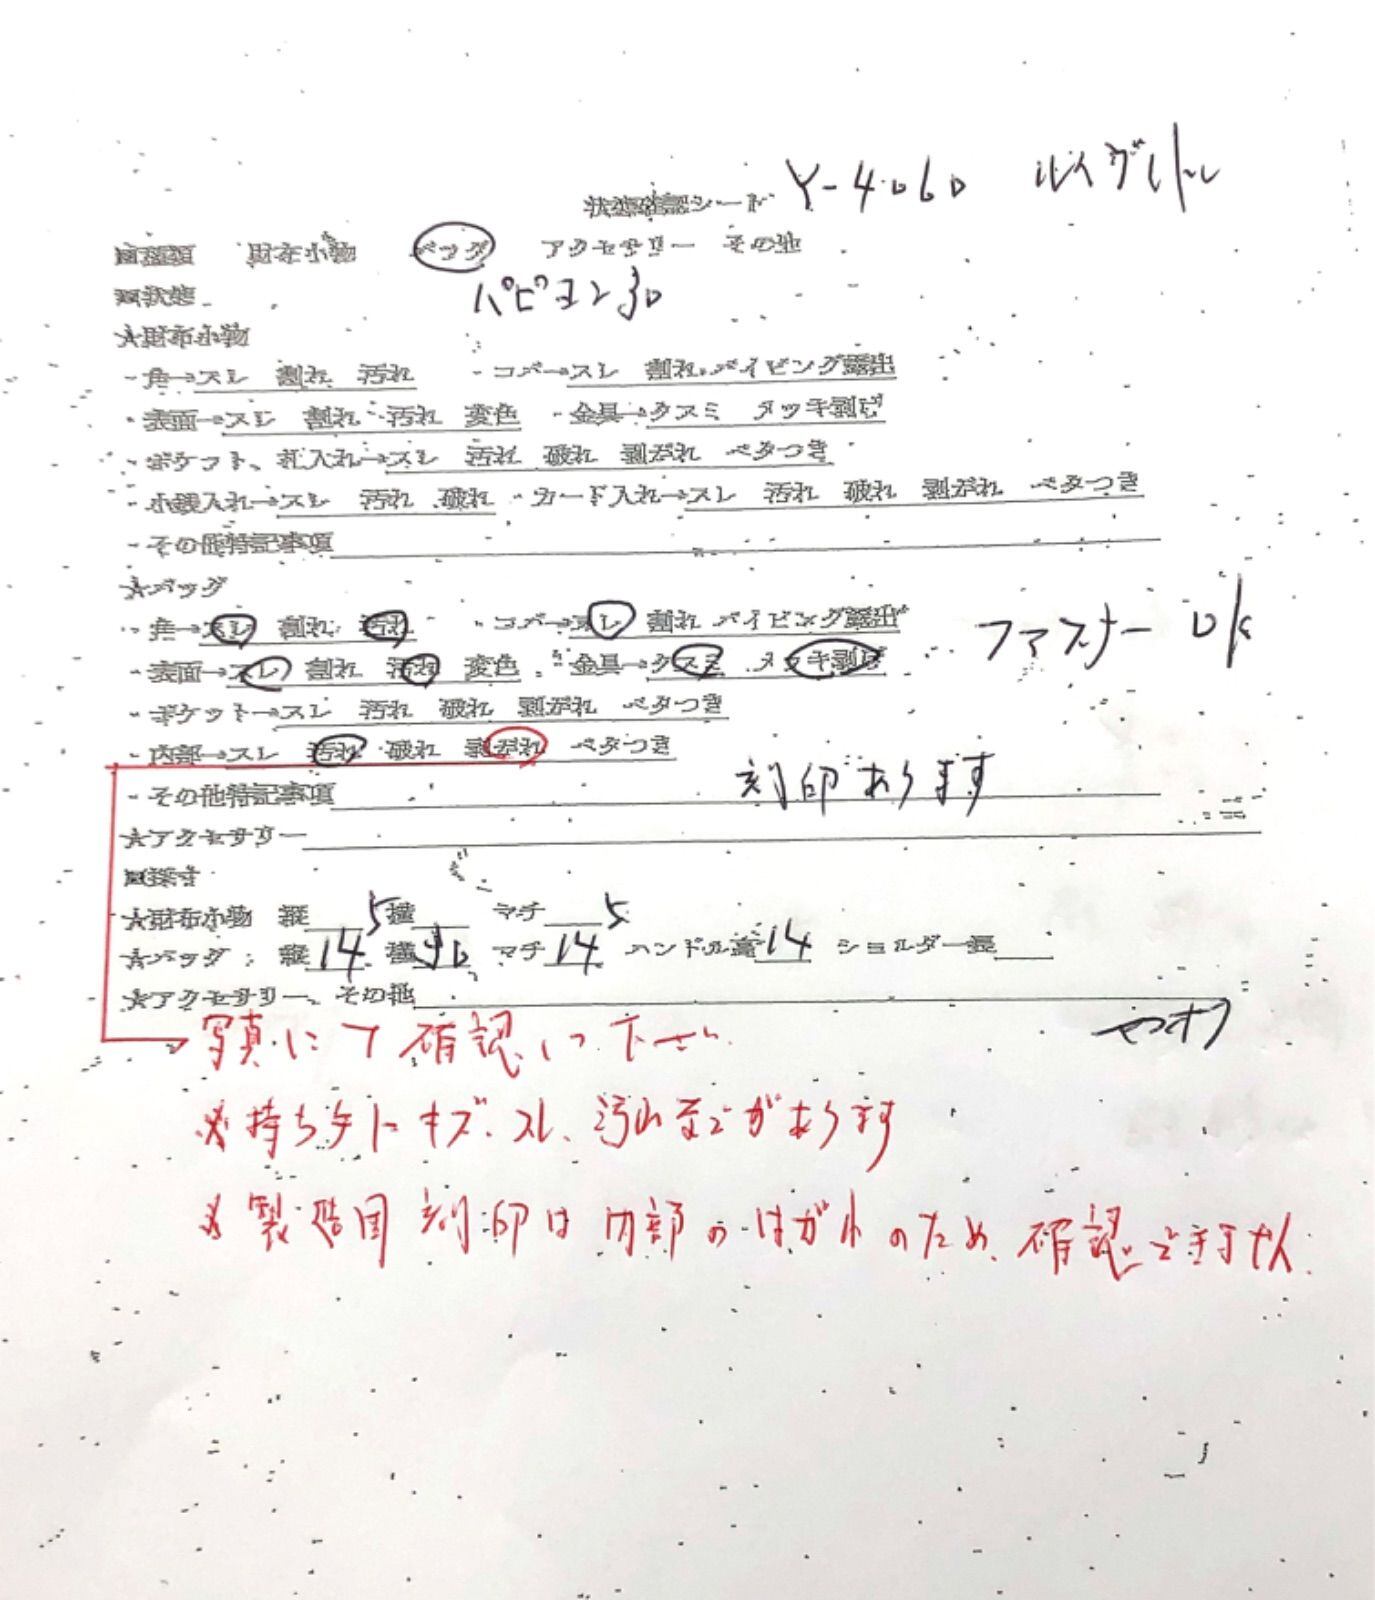 状態確認シート Y-4060
■種類 財布小物 バッグ アクセサリー その他
■状態 パピヨン30
★財布小物
・角→スレ 割れ 汚れ ・コバ→スレ 割れ パイピング露出
・表面→スレ 割れ 汚れ 変色 ・金具→クスミ メッキ剥げ
・ポケット、札入れ→スレ 汚れ 破れ 剥がれ ベタつき
・小銭入れ→スレ 汚れ 破れ ・カード入れ→スレ 汚れ 破れ 剥がれ ベタつき
・その他特記事項
★バッグ
・角→スレ 割れ 汚れ ・コバ→スレ 割れ パイピング露出 ファスナー OK
・表面→スレ 割れ 汚れ 変色 ・金具→クスミ メッキ剥げ
・ポケット→スレ 汚れ 破れ 剥がれ ベタつき
・内部→スレ 汚れ 破れ 剥がれ ベタつき
・その他特記事項 刻印あります
★アクセサリー
■採寸
★財布小物 縦 横 マチ
★バッグ 縦 14.5 横 30 マチ 14.5 ハンドル高 14 ショルダー長
★アクセサリー、その他
写真にて確認して下さい
※持ち手にキズ、スレ、汚れなどがあります
※製造国刻印は内部のはがれのため、確認できません